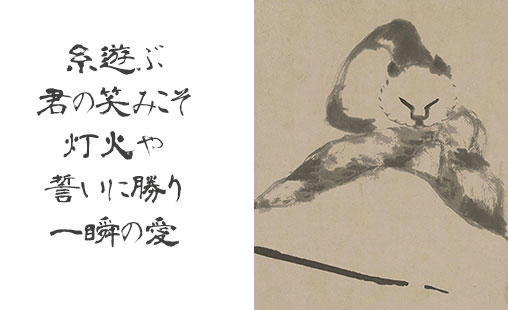 糸遊ぶ
君の笑みこそ
灯火や
誓いに勝り
一瞬の愛